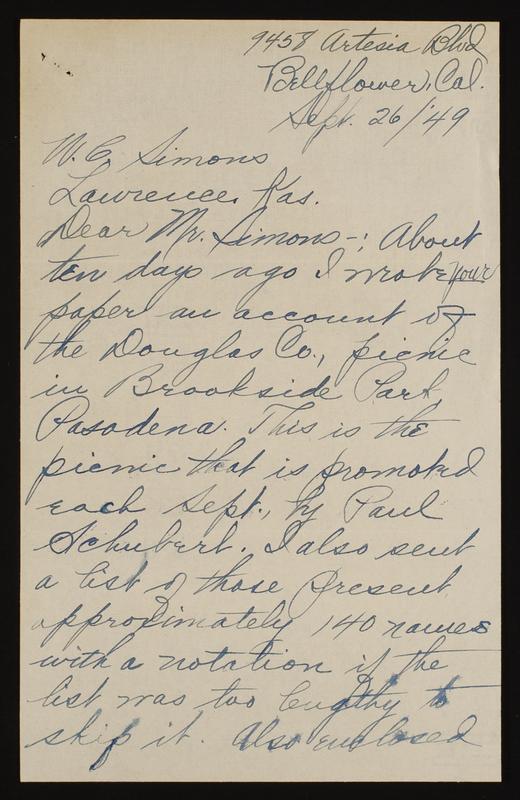 9458 Artesia Blvd
Bellflower, Cal.
Sept. 26/'49
W. C. Simons
Lawrence, Kas.
Dear Mr. Simons-: About
ten days ago I wrote your
paper an account of
the Douglas Co., picnic
in Brookside Park,
Pasadena. This is the
picnic that is promoted
each Sept., by Paul
Schubert. I also sent
a list of those present
approximately 140 names
with a notation if the
list was too lengthy to
skip it. Also enclosed